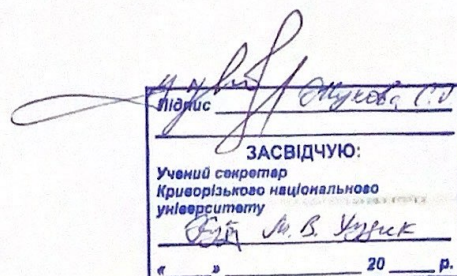 Підпис Жукова С.
ЗАСВІДЧУЮ:
Учений секретар
Криворізького національного
університету
М. В.
« » 20 р.